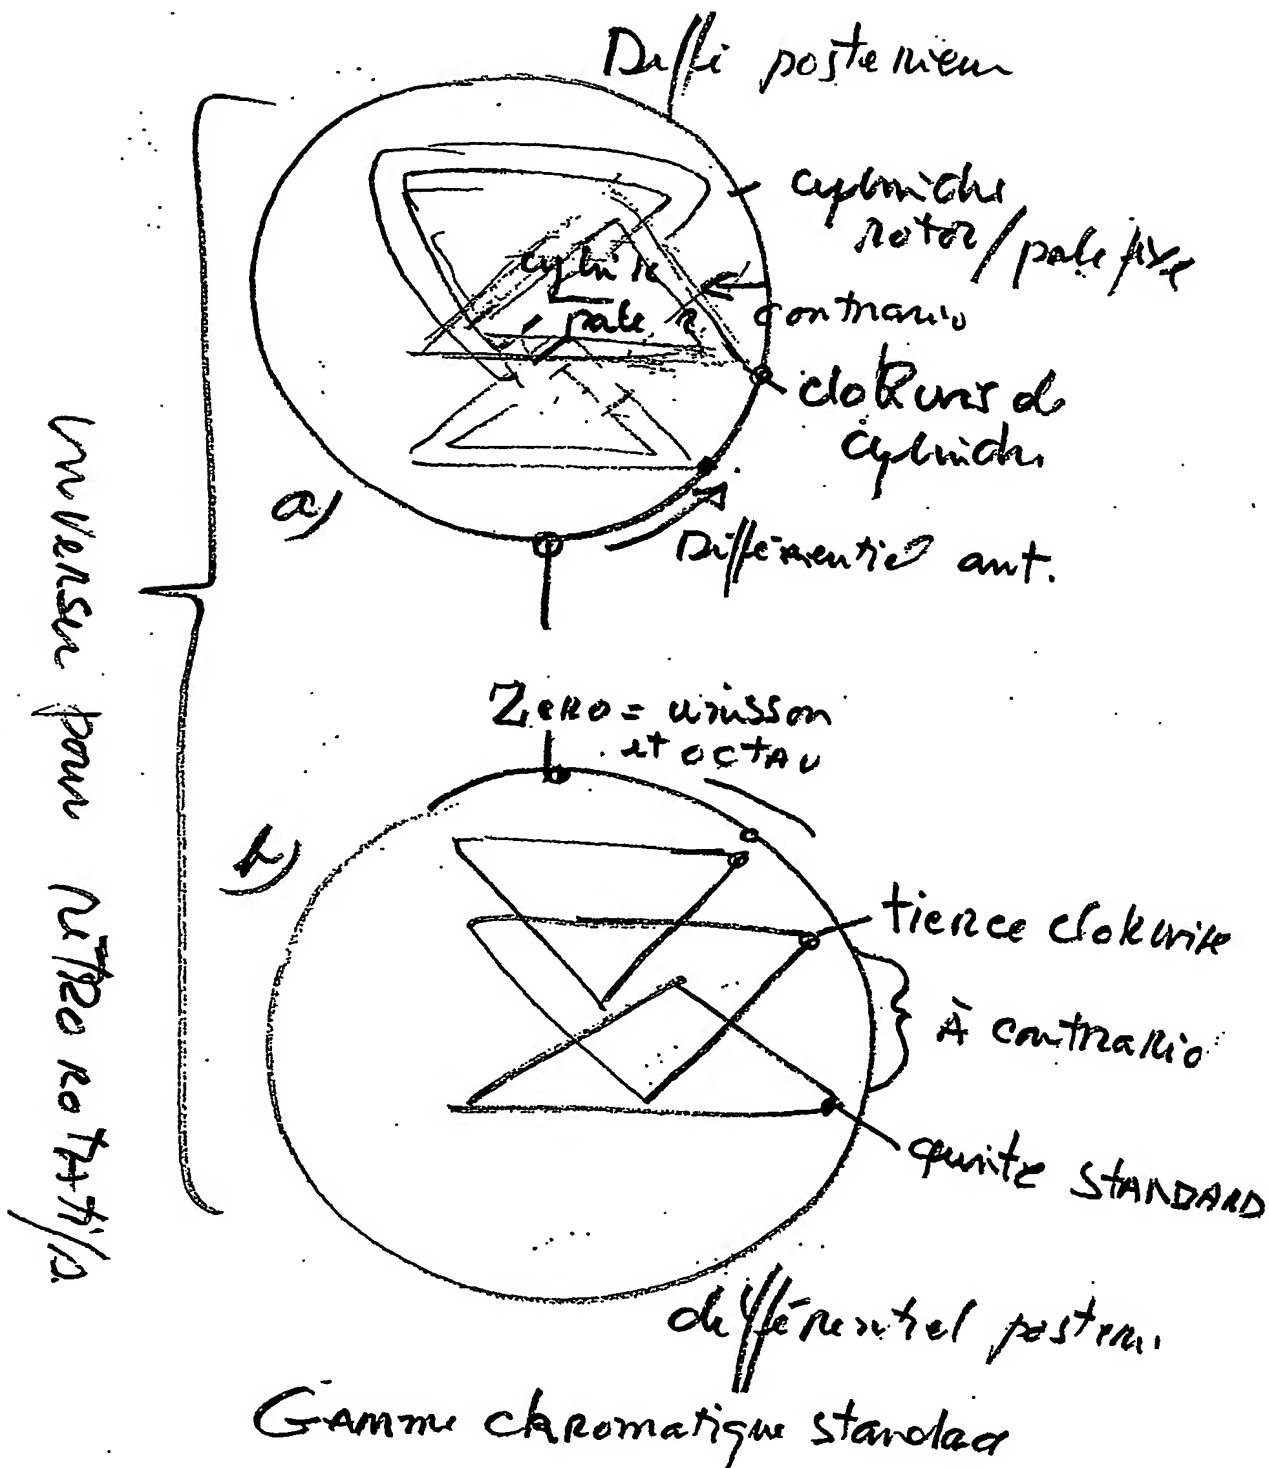 Diffi posterieur
cylindre
rotor/pale fixe
cylindre
pale
contrario
clokwis de
cylindre
a)
Différentiel ant.
Inverser pour rétrorotatifs
Zero = unisson
et octav
b)
tierce clokwise
À contrario
quinte STANDARD
différentiel posteri.
Gamme chromatique standad